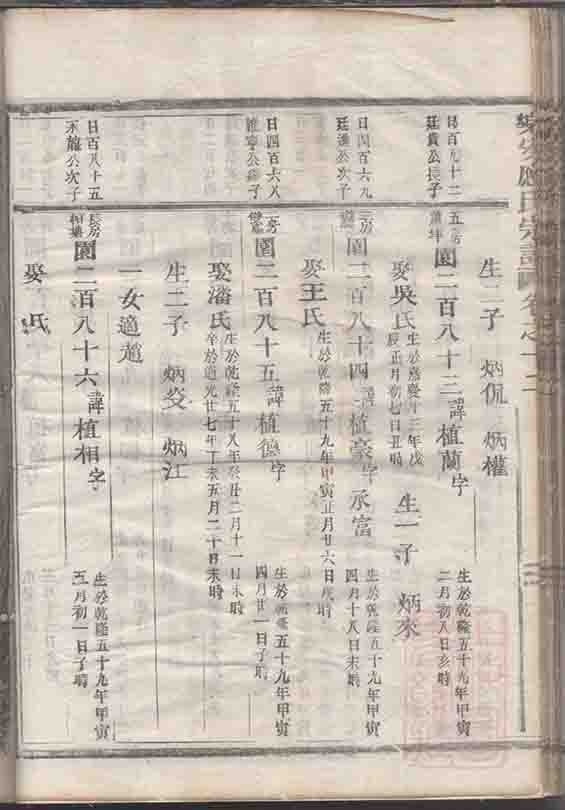 氏宗譜
卷之十二
生二子 炳侃 炳權
日百九十二
廷貴公長子
五房
園二百八十三諱植蘭字
生於乾隆五十九年甲寅
二月初八日亥時
娶吳氏
生於嘉慶十三年戊
辰正月初七日丑時
生一子 炳來
日四百六九
廷進公次子
園二百八十四諱植豪字承富
生於乾隆五十九年甲寅
四月十八日未時
娶王氏
生於乾隆五十九年甲寅正月廿六日戌時
日四百六八
園二百八十五諱植德字
生於乾隆五十九年甲寅
四月廿一日子時
娶潘氏
生於乾隆五十八年癸丑二月十一日未時
卒於道光廿七年丁未五月二十日未時
生二子 炳炎 炳江
一女適趙
日百八十五
永龍公次子
長房
園二百八十六諱植相字
生於乾隆五十九年甲寅
五月初一日子時
娶 氏